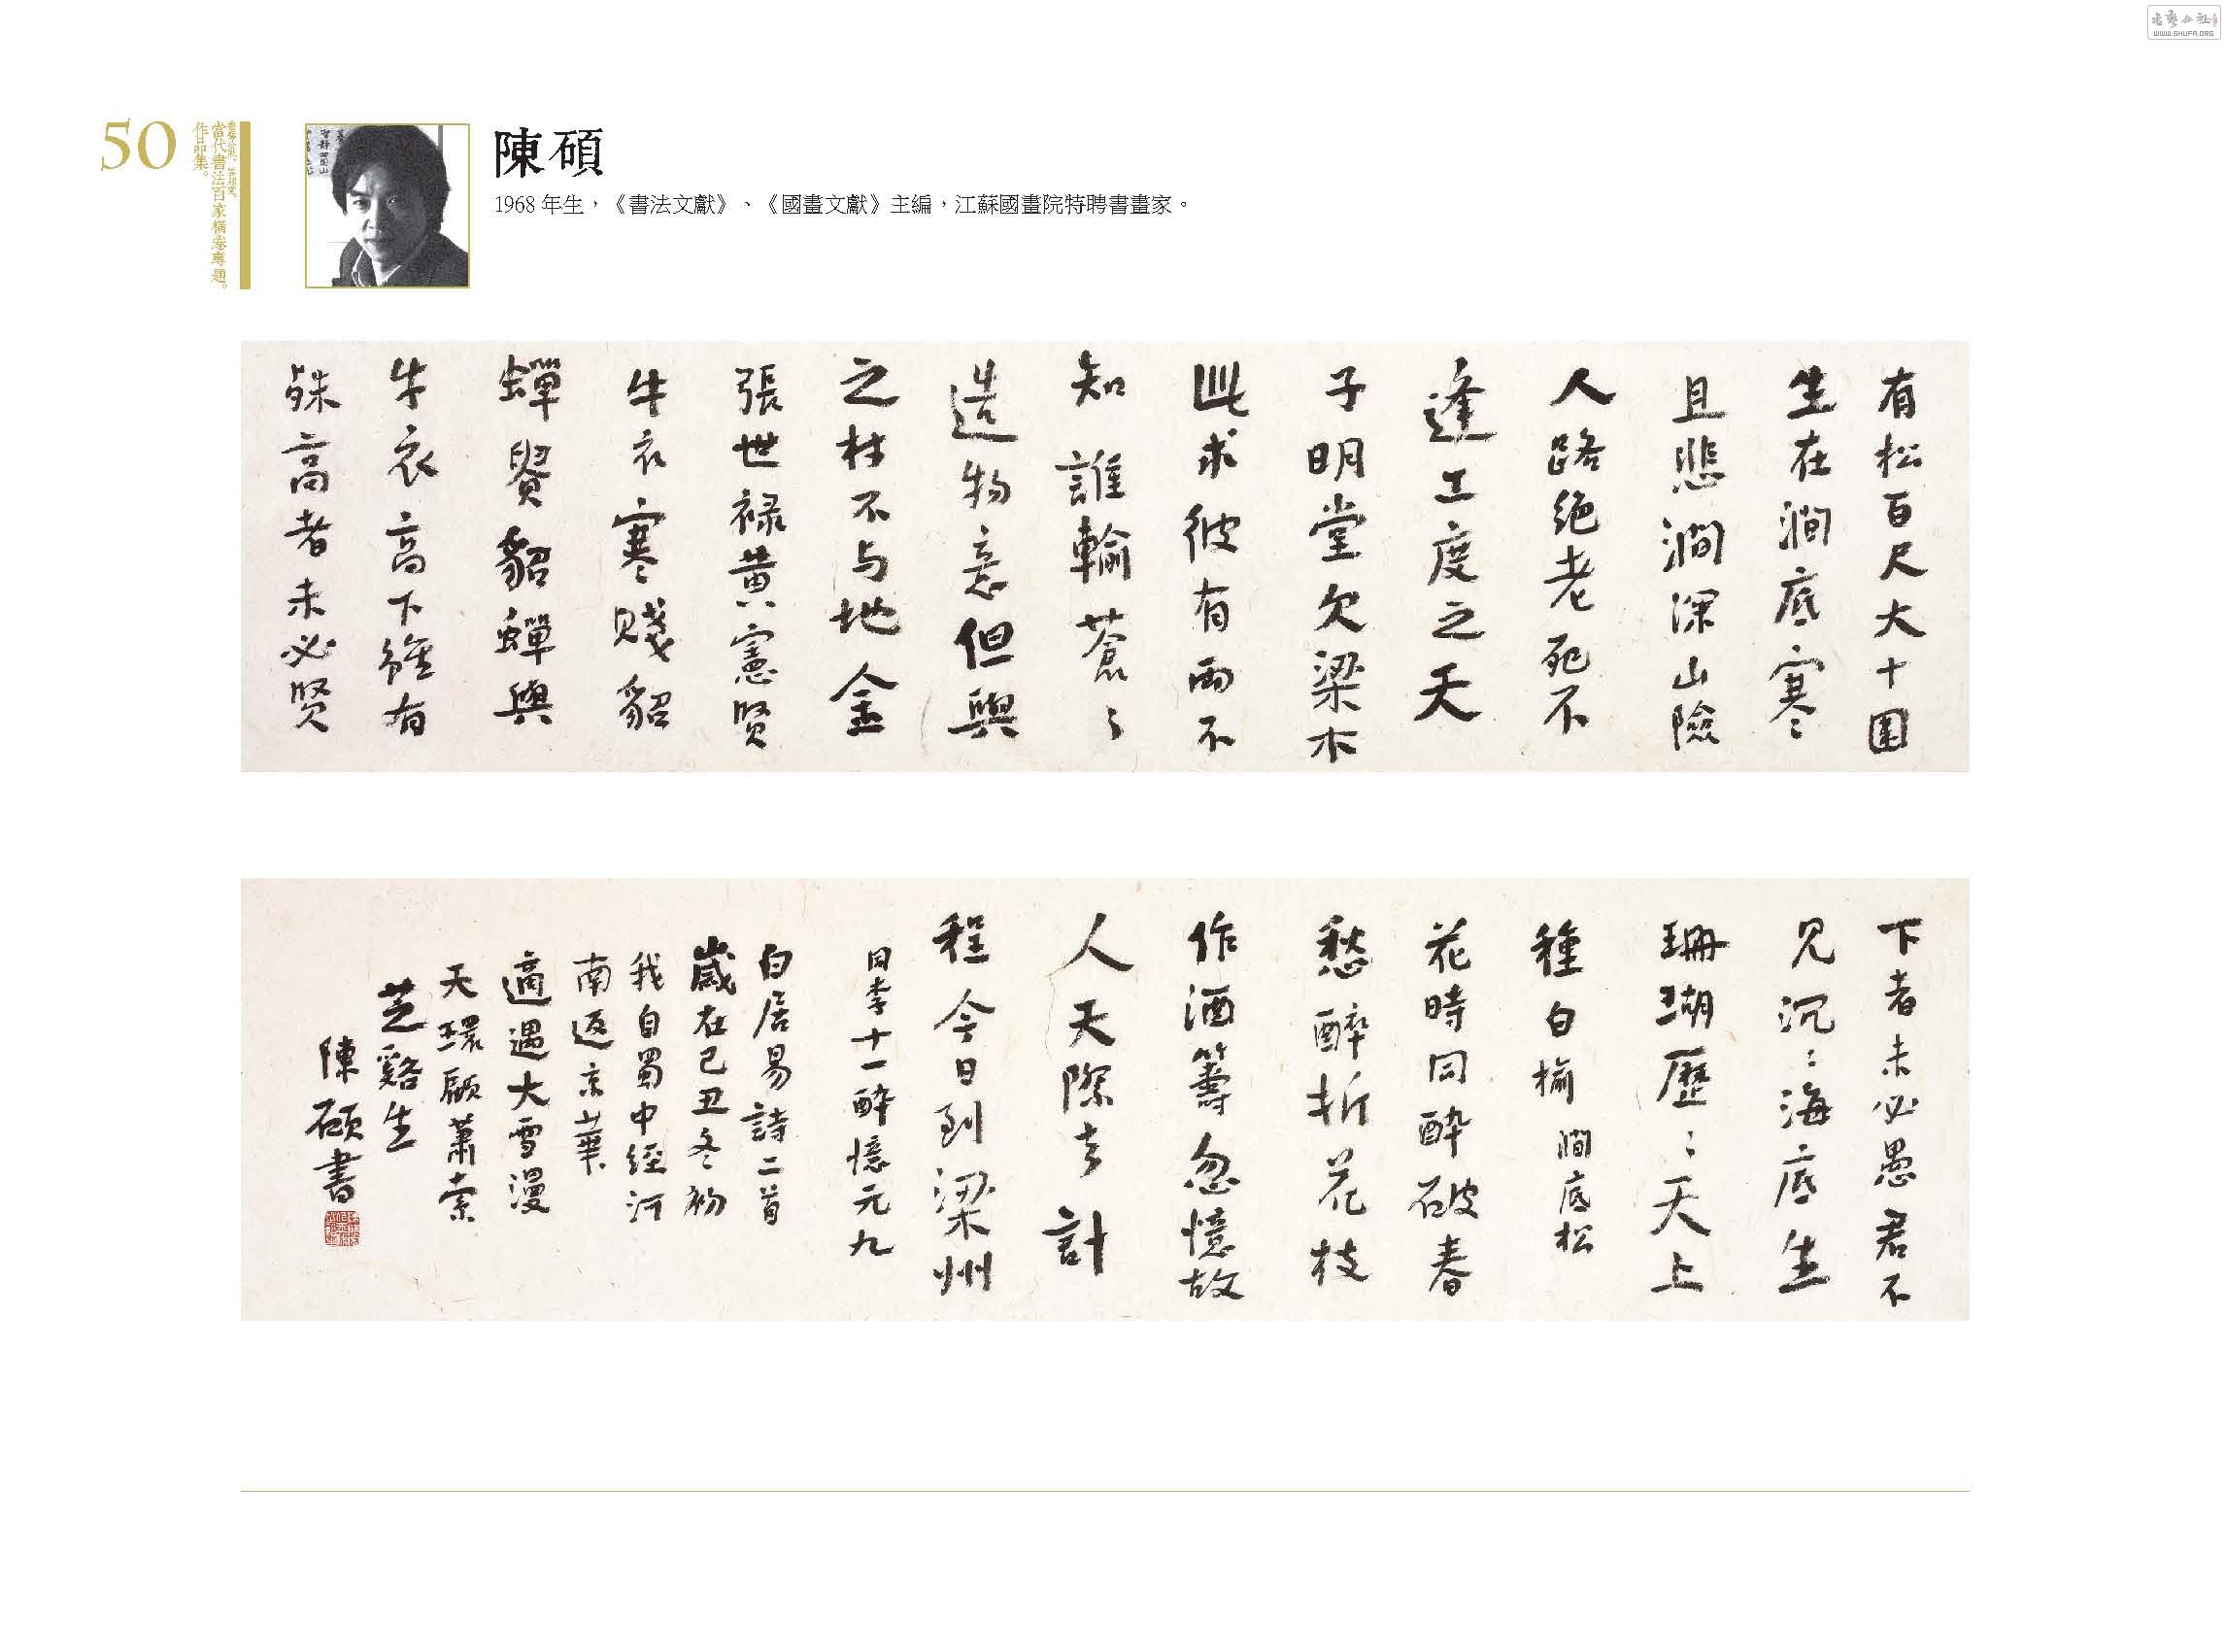 WWW.SHUFA.ORG
50
當代書法百家橫卷專題。
作品集。
陳碩
1968 年生，《書法文獻》、《國畫文獻》主編，江蘇國畫院特聘書畫家。
有松百尺大十圍
生在澗底寒〻
且悲澗深山險
人路絕老死不
逢工度之天
子明堂欠梁木
此求彼有兩不
知誰輸蒼〻
造物意但與
之材不与地金
張世祿黃憲賢
牛衣寒賤貂
蟬貴貂蟬與
牛衣高下雖有
殊高者未必賢
下者未必愚君不
見沉〻海底生
珊瑚歷〻天上
種白榆 澗底松
花時同醉破春
愁醉折花枝
作酒籌忽憶故
人天際去計
程今日到梁州
同李十一醉憶元九
白居易詩二首
歲在己丑冬初
我自蜀中經河
南返京華
適遇大雪漫
天環顧蕭索
芝谿生
陳碩書